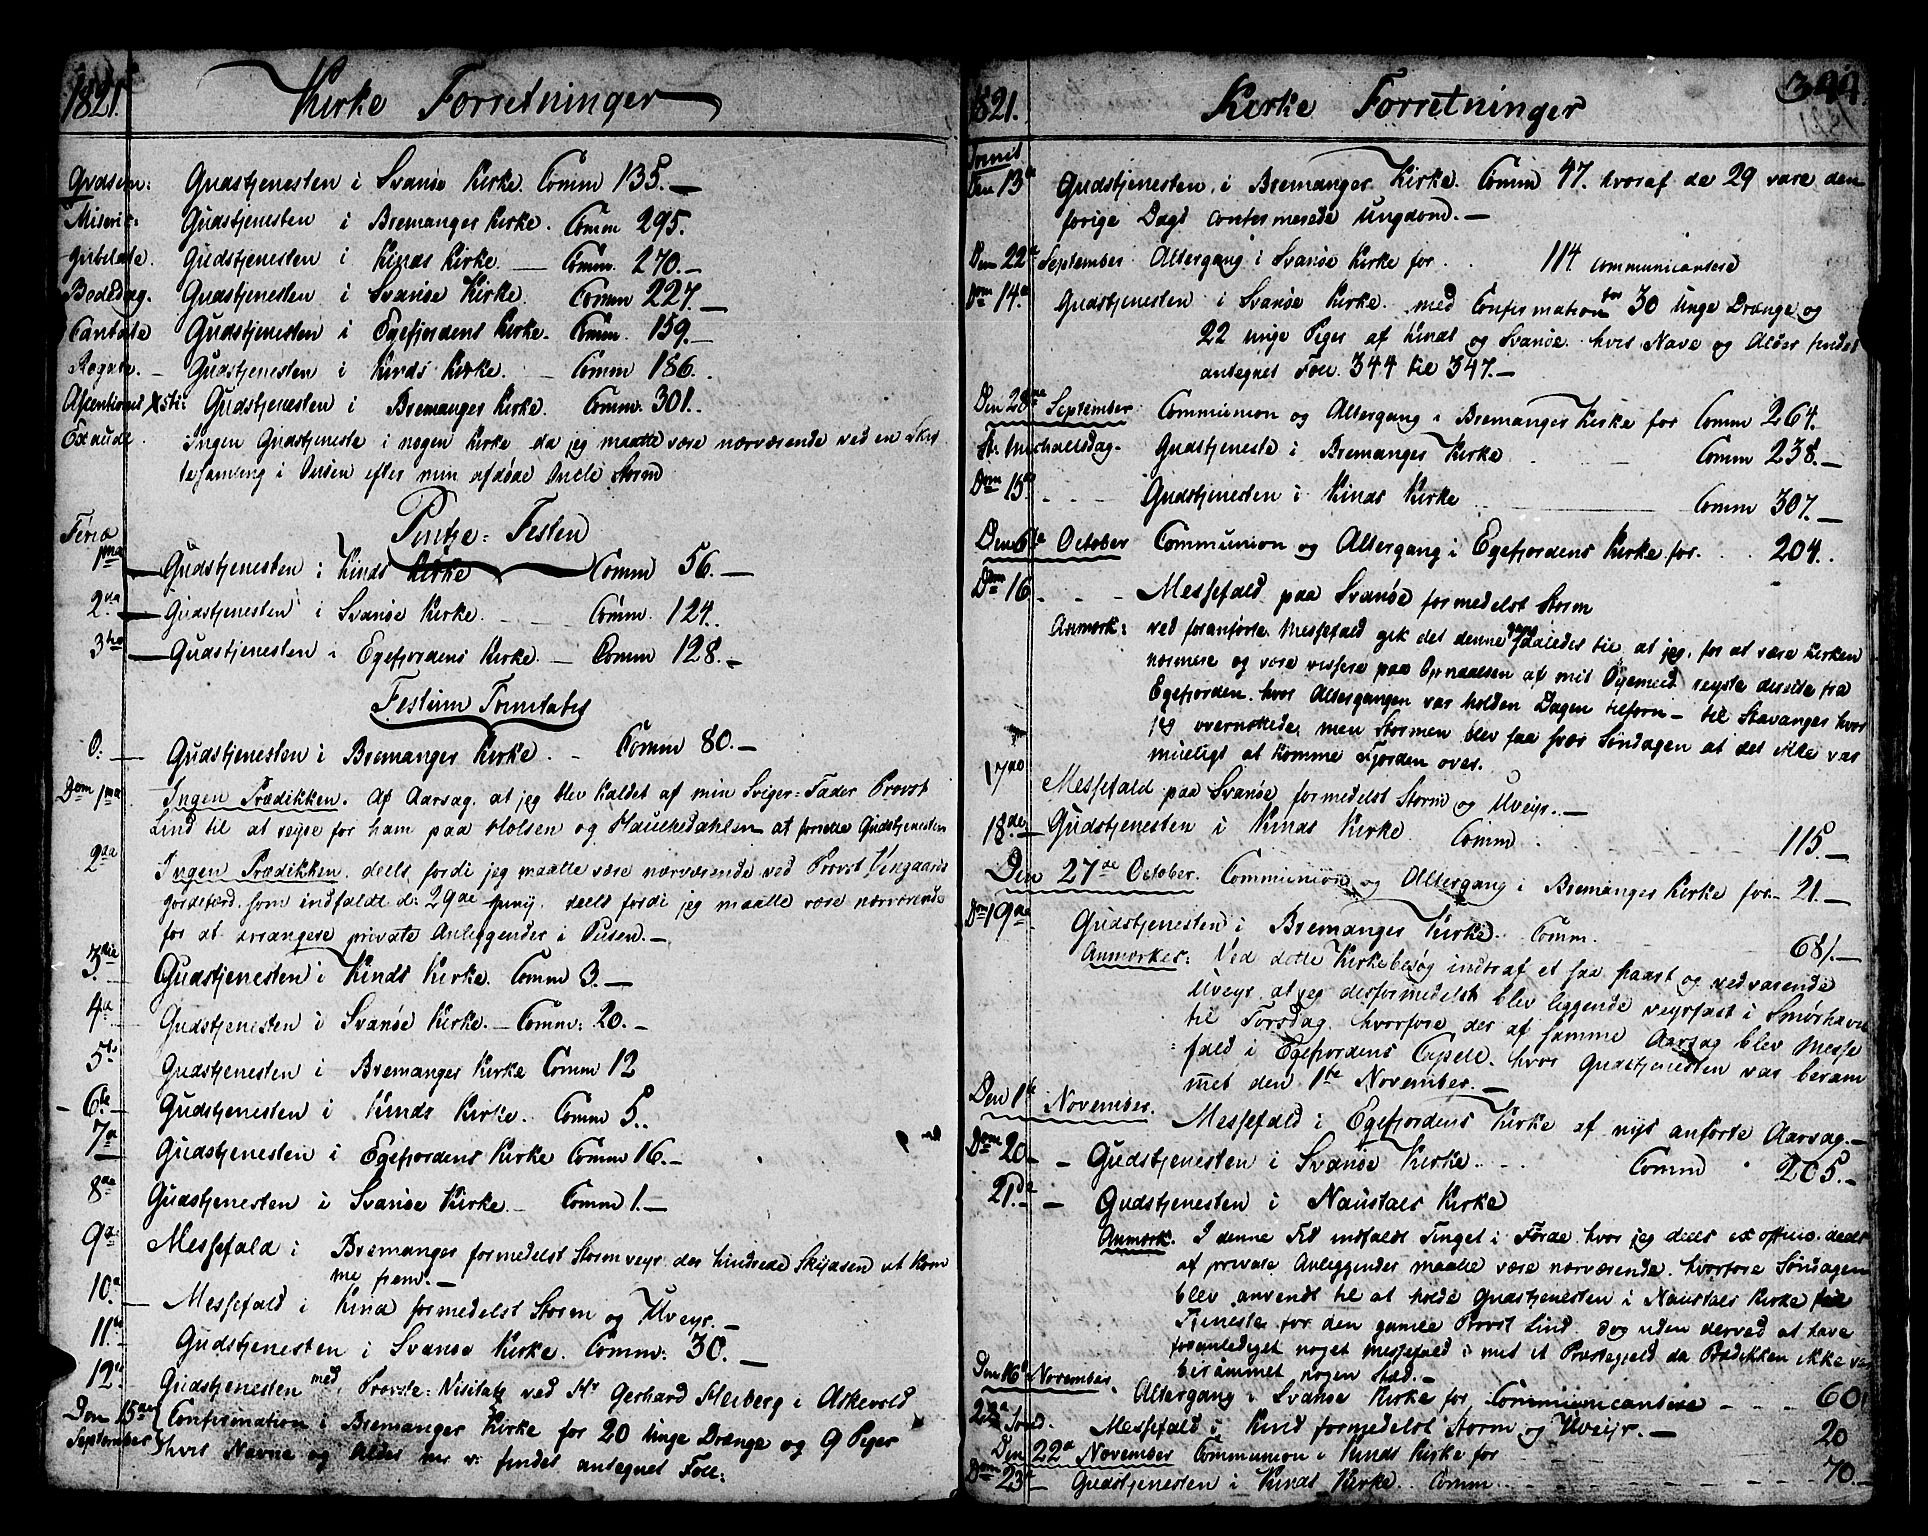 1821.
Kirke Forretninger
Gudstjenesten i Svanøe Kirke. Comm 135.—
Miseric: Gudstjenesten i Bremanger Kirke. Comm 295.
Jubilate. Gudstjenesten i Kinds Kirke. — Comm. 270.—
Bededag. Gudstjenesten i Svanøe Kirke. Comm 227.—
Cantate Gudstjenesten i Egefjordens Kirke. Comm. 159.—
Rogate. — Gudstjenesten i Kinds Kirke. — Comm 186.
Asscentionis Xsti: Gudstjenesten i Bremanger Kirke. Comm. 301.
Exaude. Ingen Gudstjeneste i nogen Kirke da jeg maatte være nærværende ved en Skif
tesamling i Ousen efter min afdøde Oncle Storm
Pintze-Festen
Feriæ
1ma Gudstjenesten i Kinds Kirke Comm 56.—
2da Gudstjenesten i Svanøe Kirke. Comm. 124.
3tia Gudstjenesten i Egefjordens Kirke. — Comm 128.—
Festum Trinitatis
0. — Gudstjenesten i Bremanger Kirke. — Comm 80.—
Dom 1ma Ingen Prædikken. Af Aarsag. at jeg blev kaldet af min Sviger-Fader Provst
Lind til at reyse for ham paa Holsen og Haukedahlen at forrette Gudstjenesten
2da Ingen Prædikken. deels fordi jeg maatte være nærværende ved Provst
Jordefærd, som indfaldt d: 29de Junij. deels fordi jeg maatte være nærværende
for at arrangere private Anleggender i Ousen.—
3die Gudstjenesten i Kinds Kirke. Comm 3.—
4a Gudstjenesten i Svanøe Kirke.— Comm: 20.—
5te Gudstjenesten i Bremanger Kirke Comm 12
6te Gudstjenesten i Kinds Kirke. Comm 5.
7a Gudstjenesten i Egefjordens Kirke Comm 16.—
8de Gudstjenesten i Svanøe Kirke.— Comm 1.—
9a Messefald i Bremanger formedelst Stormveyr der hindrede Skydsen at kom
me frem.—
10a Messefald i Kind formedelst Storm og Uveyr.—
11te Gudstjenesten i Svanøe Kirke. Comm: 30.—
12te Gudstjenesten med Provste-Visitatz ved Hr Gerhard Heiberg i Askevold
Den 15de Confirmation i Bremanger Kirke for 20 unge Drænge og 9 Piger
September hvis Navne og Alder findes antegnet Foll:
1821.
Kirke Forretninger
344
Trinit
Den 13de Gudstjenesten i Bremanger Kirke. Comm 47. hvoraf de 29 vare den
forige Dags confirmerede Ungdom.—
Den 22de September Altergang i Svanøe Kirke for 114 communicantere
Dom 14a Gudstjenesten i Svanøe Kirke. med Confirmation for 30 unge Drænge og
22 unge Piger af Kinds og Svanøe. hvis Nave og Alder findes
antegnet Foll. 344 til 347.—
Den 28de September Communion og Altergang i Bremanger Kirke for Comm 264.
St. Michaelsdag. Gudstjeneste i Bremanger Kirke Comm 238.—
Dom 15de Gudstjenesten i Kinds Kirke Comm 307.—
Den 6te October Communion og Altergang i Egefjordens Kirke for. 204.
Dom 16 Messefald paa Svanøe formedelst Storm
Anmærk: ved foranførte Messefald gik det denne gang saaledes til. at jeg, for at være Kirken
nærmere og være vissere paa Opnaaelsen af mit Øyemed reyste derette fra
Egefjorden. hvor Altergangen var holden Dagen tilforn— til Stavanger hvor
jeg overnattede, men Stormen blev saa svær Søndagen at det ikke var
mueligt at komme Fjorden over.
17de Messefald paa Svanøe formedelst Storm og Uveyr.—
18de Gudstjenesten i Kinds Kirke Comm 115.—
Den 27de October. Communion og Altergang i Bremanger Kirke for 21.—
Dom 19de Gudstjenesten i Bremanger Kirke. Comm. 68.—
Anmærker: Ved dette Kirkebesøg indtraf et saa haart og vedvarende
Uveyr at jeg desformedelst blev liggende veyrfast i Smørhavn
til Torsdag, hvorfore der af samme Aarsag blev Messe
fald i Egefjordens Capell. hvor Gudstjenesten var beram
met den 1te November.—
Den 1te November. Messefald i Egefjordens Kirke af nys anførte Aarsag.—
Dom 20. — Gudstjenesten i Svanøe Kirke. Comm 205.—
21de — Gudstjenesten i Naustdals Kirke
Anmærk. I denne Tid indfaldt Tinget i Førde, hvor jeg deels ex officio. deels
af private Anleggender maatte være nærværende. hvorfore Søndagen
blev anvendt til at holde Gudstjenesten i Naustals Kirke til
Tjeneste for den gamle Provst Lind, dog uden derved at have
foranlediget noget Messefald i mit et Præstegjeld da Prædikken ikke var
berammet nogen Stæd.—
Den 16de November. Altergang i Svanøe Kirke for Communicantere 60
22de Messefald i Kind formedelst Storm og Uveyr.—
Den 22a November Communion i Kinds Kirke for 20
Dom 23de Gudstjenesten i Kinds Kirke. Comm. 70.—